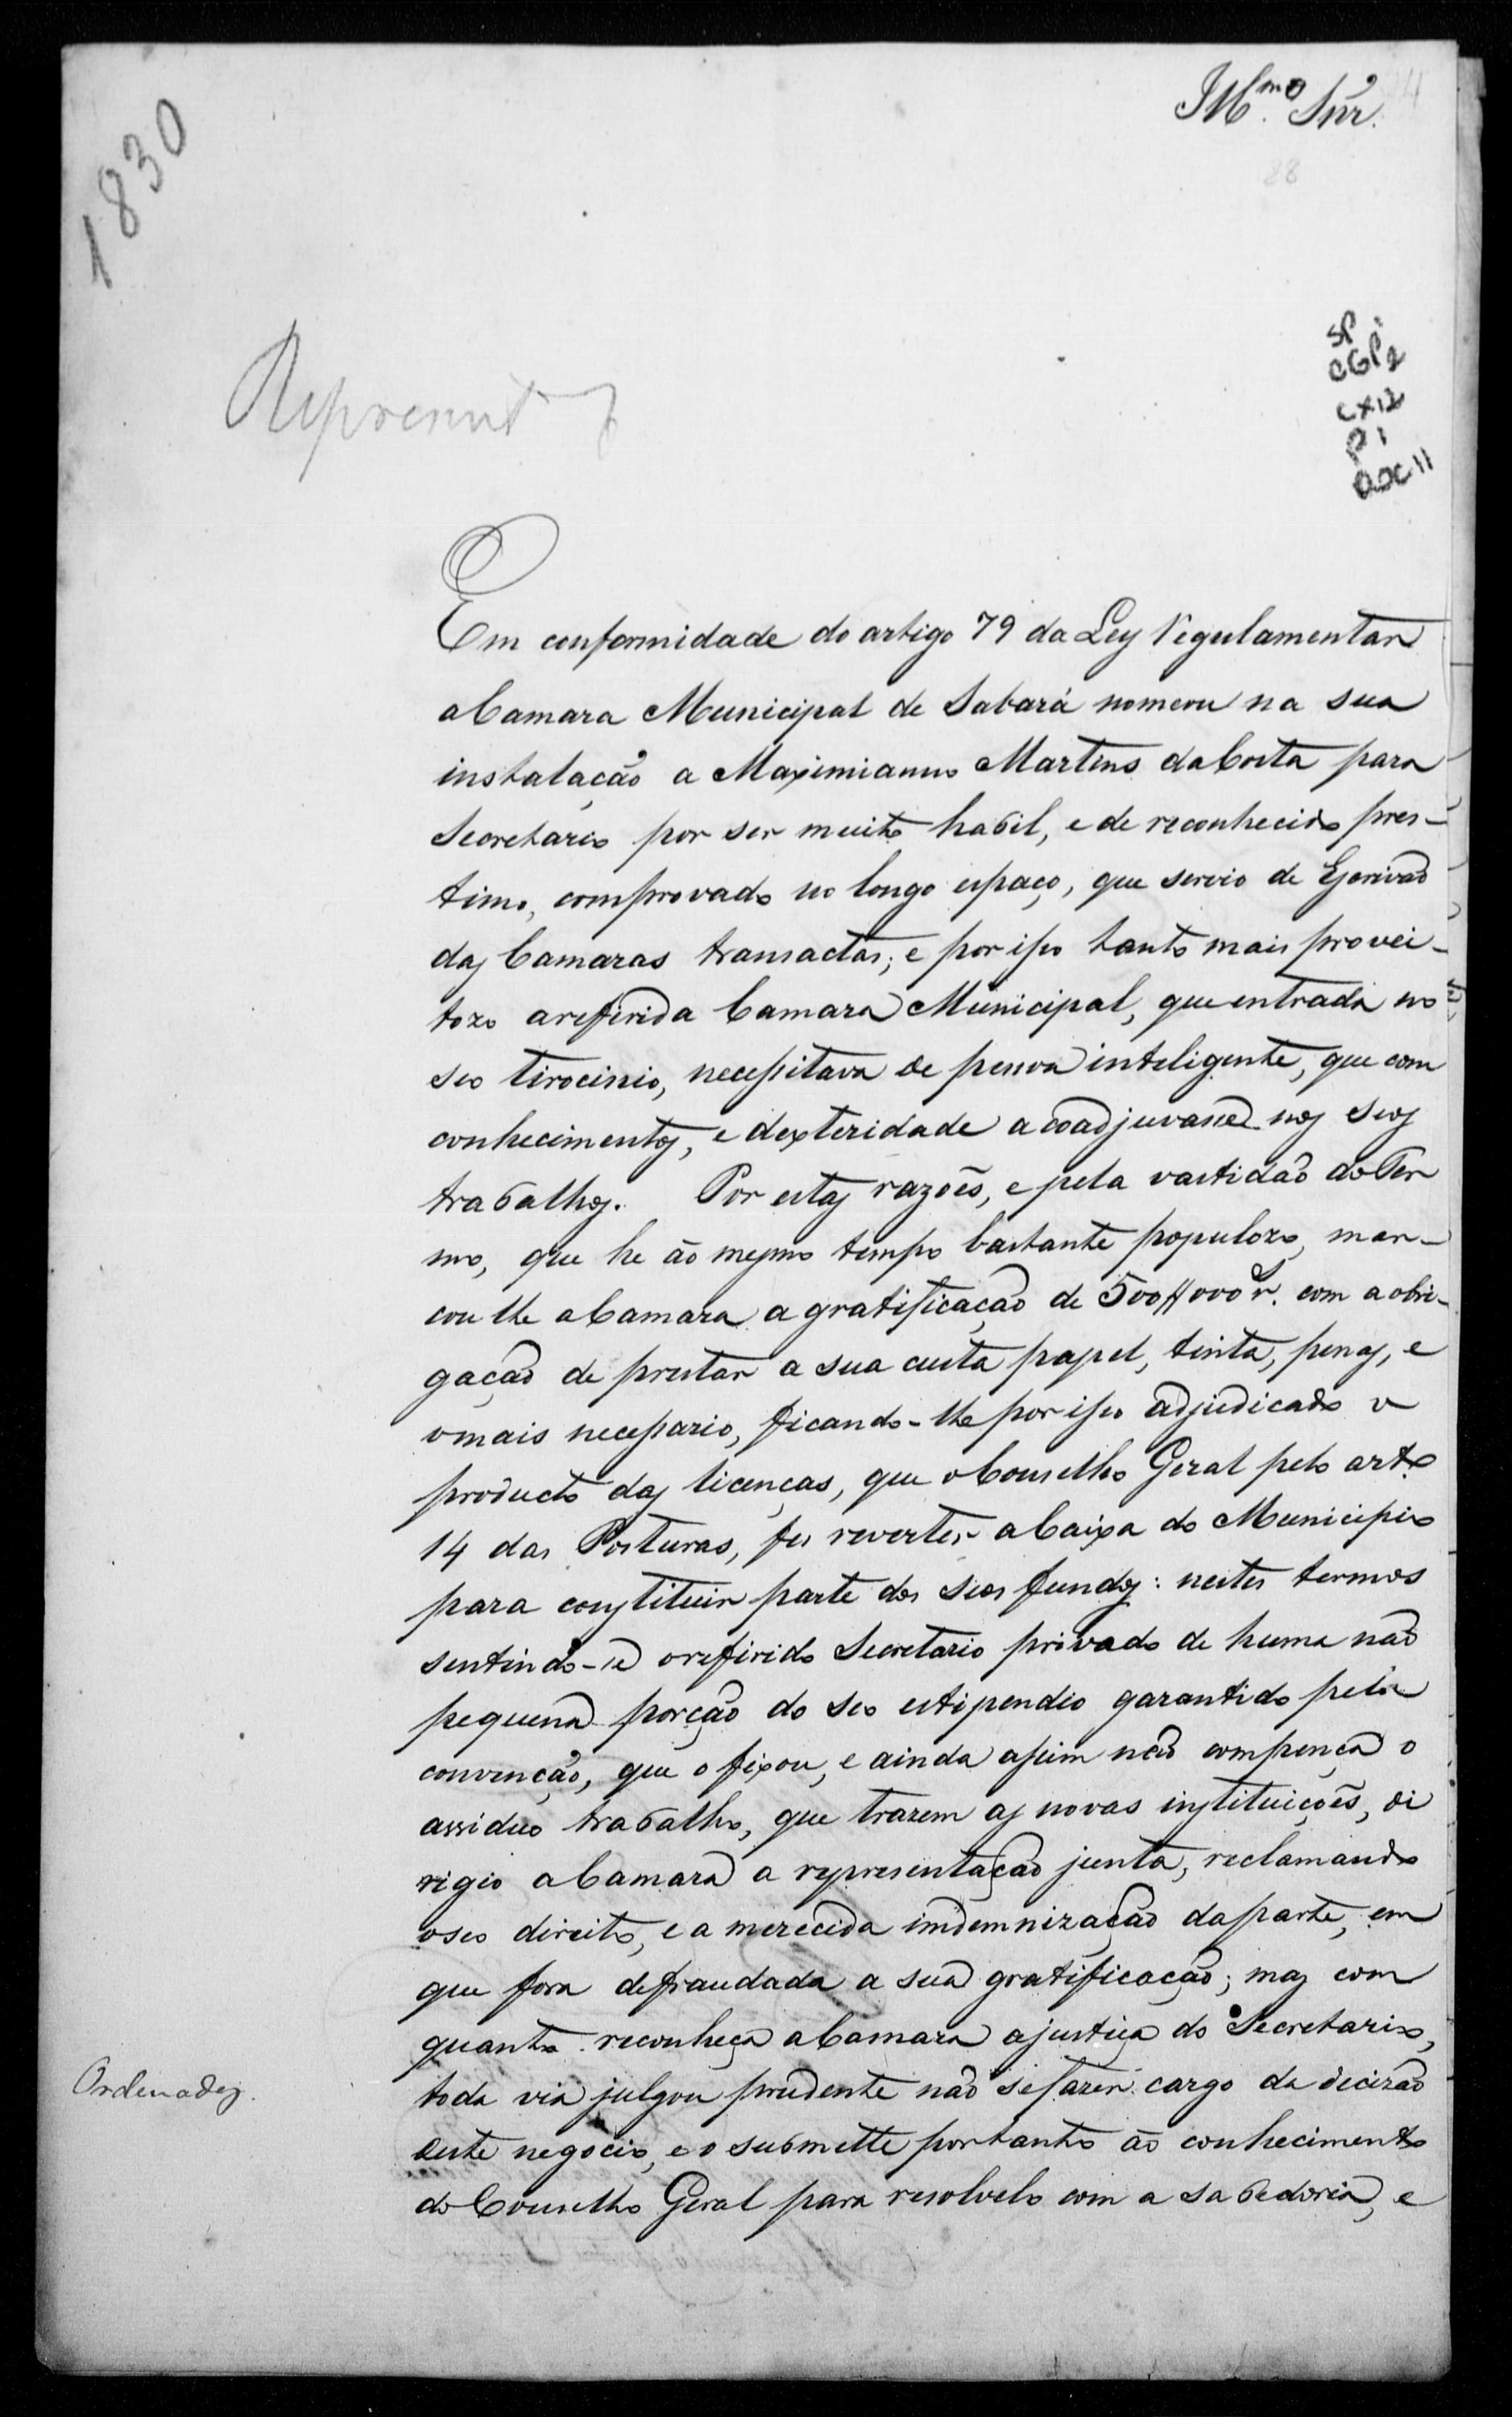 Ill.mo Snr.
1830
88
SP
CGP1 2
CX12
P1
DOC 11
Em conformidade do artigo 79 da Ley Regulamentar
a Camara Municipal de Sabará nomeou na sua
instalação a Maximianno Martins da Costa para
Secretario por ser muito habil, e de reconhecido pres-
timo, comprovado no longo espaço, que servio de Escrivão
das Camaras transactas; e por isso tanto mais provei-
tozo a referida Camara Municipal, que entrada no
seo tirocinio, necessitava de pessoa inteligente, que com
conhecimentos, e dexteridade a coadjuvasse nos seos
trabalhos. Por estas razoẽs, e pela vastidão do Ter
mo, que he aõ mesmo tempo bastante populozo, mar-
cou lhe a Camara a gratificação de 500//000 rs. com a obri-
gação de prestar a sua custa papel, tinta, penas, e
o mais necessario, ficando-lhe por isso adjudicado o
producto das licenças, que o Conselho Geral pelo art.o
14 das Posturas, fes reverter a Caixa do Municipio
para constituir parte dos seos fundos: nestes termos
sentindo-se o referido Secretario privado de huma não
pequena porção do seo estipendio garantido pela
convenção, que o fixou, e ainda assim não compença o
assiduo trabalho, que trazem as novas instituiçoẽs, di
rigio a Camara a representação junta, reclamando
o seo direito, e a merecida indemnização da parte, em
que fora defraudada a sua gratificação; mas com
quanto reconheça a Camara a justiça do Secretario,
toda via julgou prudente não se fazer cargo da decizão
deste negocio, e o submette portanto aõ conhecimento
do Conselho Geral para resolvelo com a sabedoria, e
Ordenados.